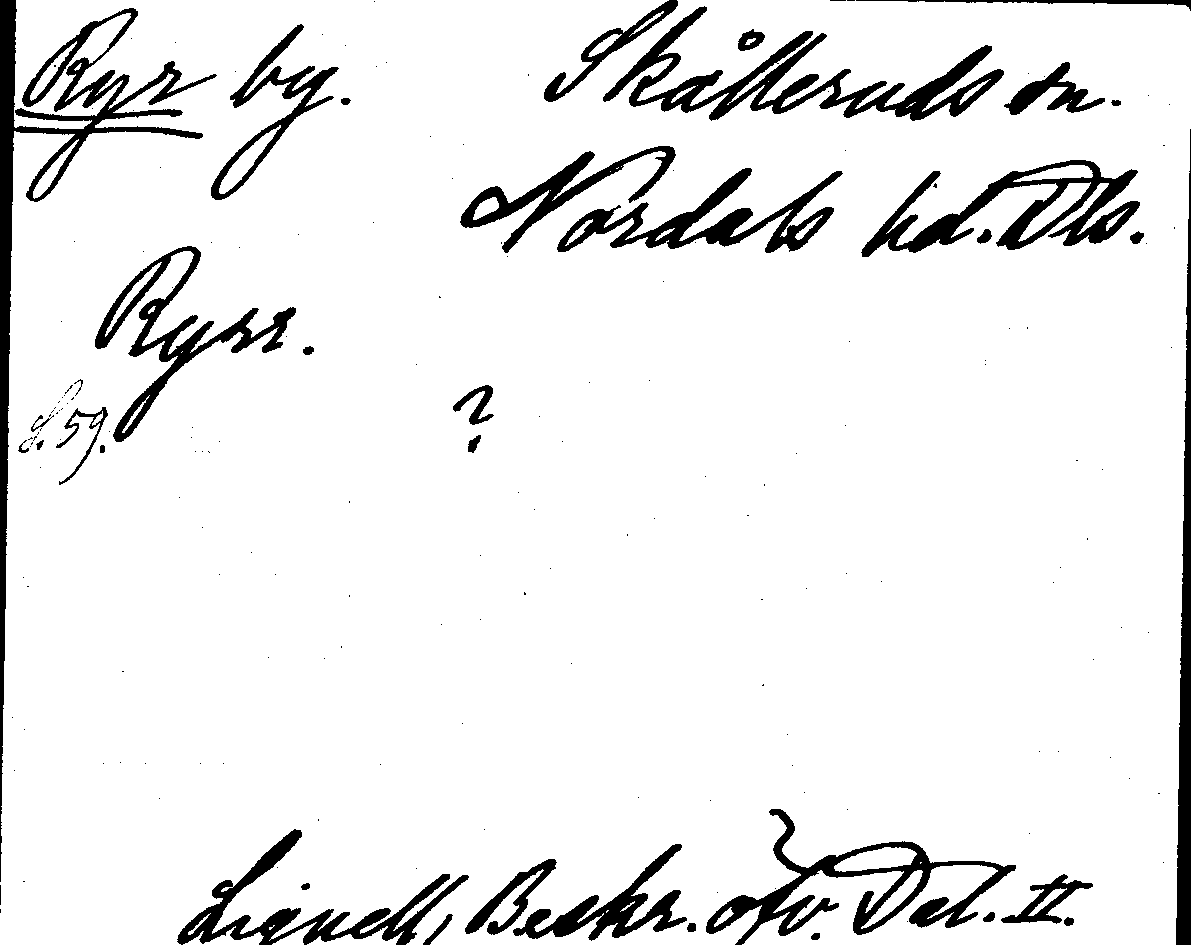 Ryr by. Skålleruds sn.
Nordals hd. Dls.
Ryrr.
S. 59. ?
Lignell, Beskr. öfv. Dal. II.